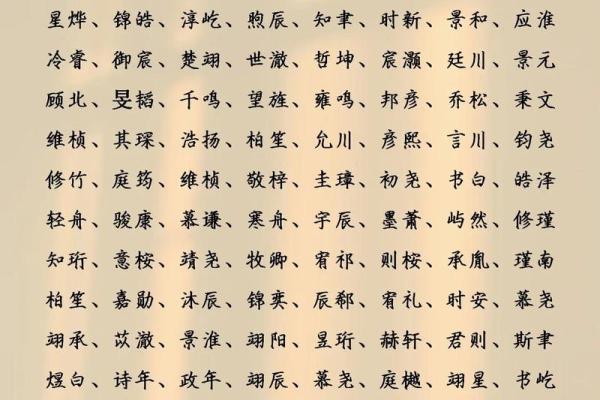 星烨、锦皓、淳屹、煦辰、知聿、时新、景和、应淮
冷睿、御宸、楚翊、世澈、哲坤、宸灏、廷川、景元
顾北、旻韬、千鸣、望旌、雍鸣、邦彦、乔松、秉文
维桢、其琛、浩扬、柏笙、允川、彦熙、言川、钧尧
修竹、庭筠、维桢、敬梓、圭璋、初尧、书白、皓泽
轻舟、骏康、慕谦、寒舟、宇辰、墨萧、屿然、修瑾
知珩、意桉、靖尧、牧卿、宥祁、则桉、承胤、瑾南
柏笙、嘉勋、沐辰、锦奕、辰郗、宥礼、时安、慕尧
翊承、苡澈、景淮、翊阳、昱珩、赫轩、君则、斯聿
煜白、诗年、政年、翊辰、慕尧、庭樾、翊星、书屹